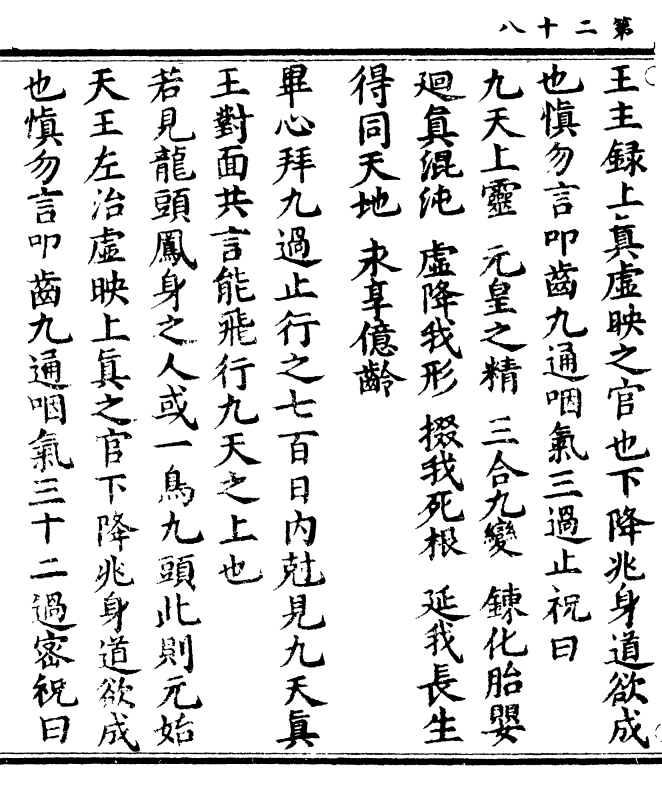 第二十八
王主録上真虛映之官也下降兆身道欲成
也慎勿言叩齒九通咽氣三過止祝曰
九天上靈 元皇之精 三合九變 鍊化胎嬰
廻真混沌 虛降我形 掇我死根 延我長生
得同天地 永享億齡
畢心拜九過止行之七百日內尅見九天真
王對面共言能飛行九天之上也
若見龍頭鳳身之人或一鳥九頭此則元始
天王左治虛映上真之官下降兆身道欲成
也慎勿言叩齒九通咽氣三十二過密祝曰